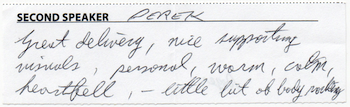 SECOND SPEAKER PEREK
Great delivery, nice supporting
visuals, personal, warm, calm,
heartfell, - little bit of body rocking